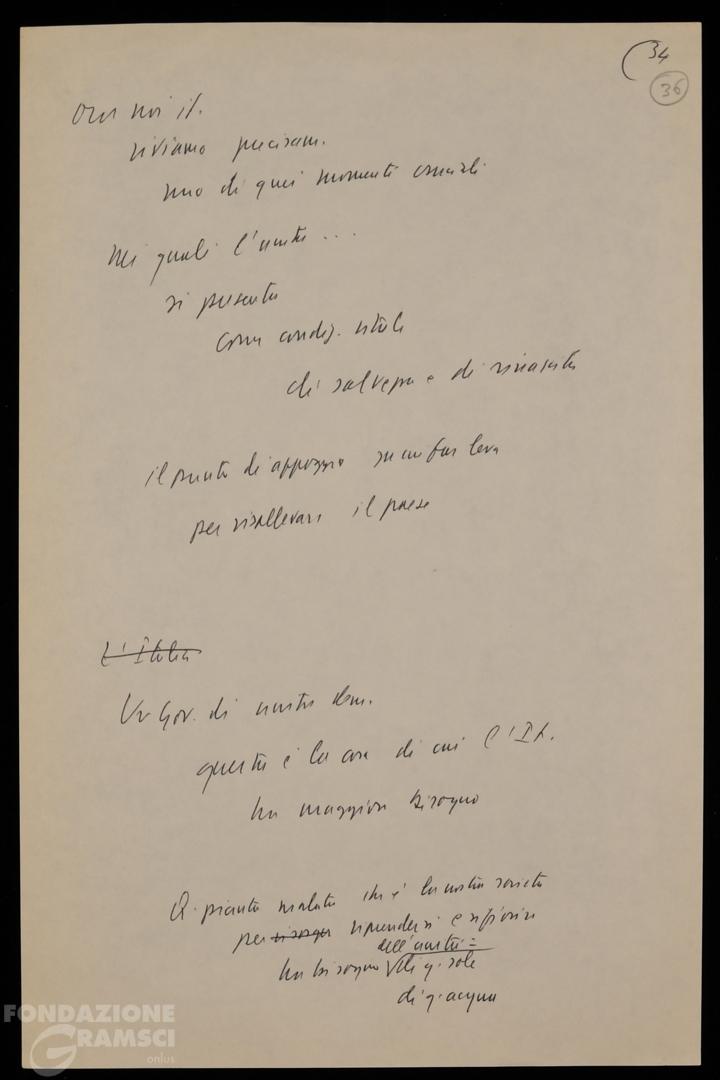 (34
36
Ora noi it.
viviamo precisam.
uno di quei momenti cruciali
nei quali l'unità ...
si presenta
come condiz. vitale
di salvezza e di rinascita
il punto di appoggio su cui far leva
per risollevare il paese
L'Italia
Un Gov. di unità dem.
questa è la cosa di cui l'It.
ha maggiore bisogno
Q. pianta malata che è la nostra società
per risorger riprendersi e rifiorire
dell'unità =
ha bisogno di q. sole
di q. acqua
FONDAZIONE
GRAMSCI
onlus